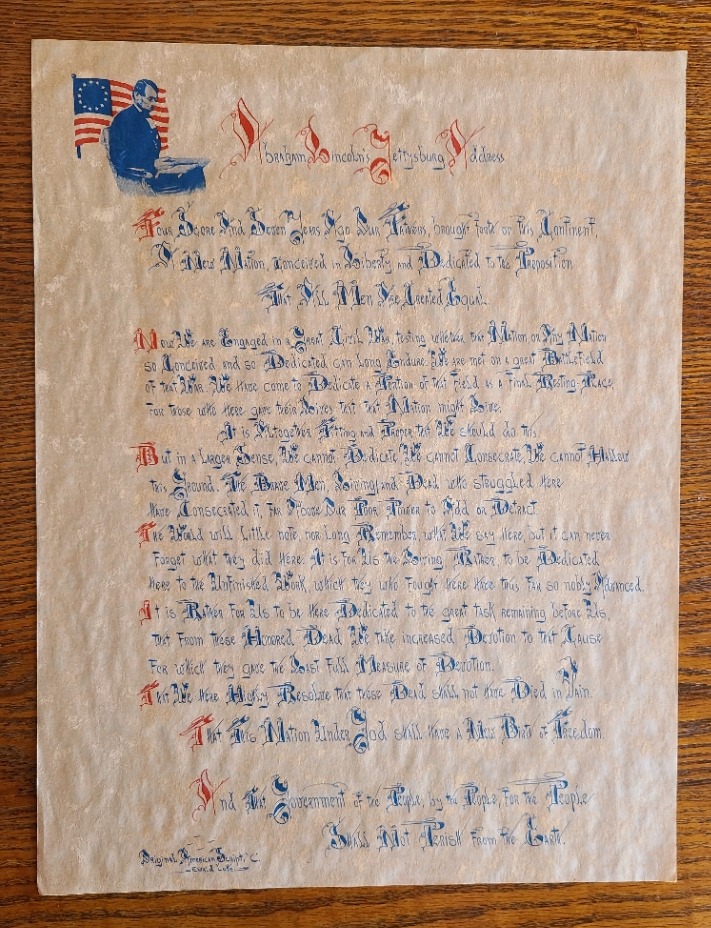 Abraham Lincoln's Gettysburg Address
Four Score And Seven Years Ago Our Fathers, brought forth on this Continent,
A New Nation, Conceived in Liberty and Dedicated to the Proposition
That All Men Are Created Equal.
Now We are Engaged in a Great Civil War, testing whether that Nation or Any Nation
so Conceived and so Dedicated can Long Endure. We are met on a great Battlefield
of that War. We Have come to Dedicate a Portion of that Field as a Final Resting-Place
For those who Here gave their Lives that that Nation might Live.
It is Altogether Fitting and Proper that We should do this.
But in a Larger Sense, We cannot Dedicate, We cannot Consecrate, We cannot Hallow
this Ground. The Brave Men, Living and Dead who struggled Here
Have Consecrated it, Far Above Our Poor Power to Add or Detract.
The World will Little note, nor Long Remember, what We say Here, but it can never
Forget what they did Here. It is For Us the Living Rather, to be Dedicated
Here to the Unfinished Work, which they who Fought Here Have thus Far so nobly Advanced.
It is Rather For Us to be Here Dedicated to the great task remaining before Us,
that From these Honored Dead We take increased Devotion to that Cause
For which they gave the Last Full Measure of Devotion.
That We Here Highly Resolve that these Dead shall not Have Died in Vain.
That This Nation Under God shall Have A New Birth of Freedom.
And That Government of the People, by the People, For the People
Shall Not Perish From the Earth.
Original American Script, C.